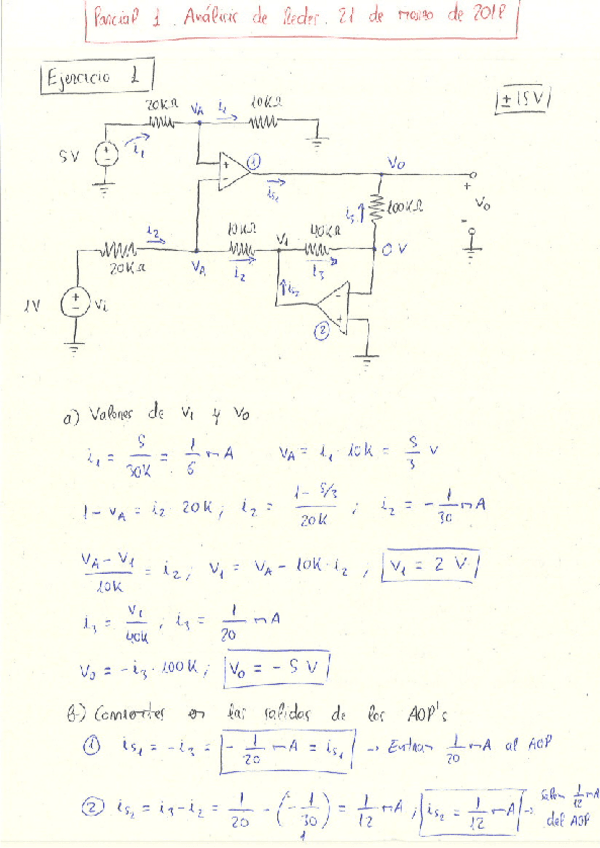 Parcial 1. Análisis de Redes. 21 de marzo de 2018
Ejercicio 1
±15V
20KΩ
VA
i1
10KΩ
5V
i1
+
-
1
is1
Vo
+
Vo
-
i3
100KΩ
i2
10KΩ
V1
40KΩ
0V
20KΩ
VA
i2
i3
is2
1V
Vi
2
a) Valores de V1 y Vo
i1 = 5/30K = 1/6 mA VA = i1 · 10K = 5/3 V
1 - VA = i2 · 20K ; i2 = (1 - 5/3)/20K ; i2 = -1/30 mA
(VA - V1)/10K = i2 ; V1 = VA - 10K · i2 , V1 = 2 V
i3 = V1/40K ; i3 = 1/20 mA
Vo = -i3 · 100K ; Vo = -5 V
b) Corrientes en las salidas de los AOP's
1 is1 = -i3 = -1/20 mA = is1 → Entran 1/20 mA al AOP
2 is2 = i3 - i2 = 1/20 - (-1/30) = 1/12 mA ; is2 = 1/12 mA → Salen 1/12 mA
del AOP
1